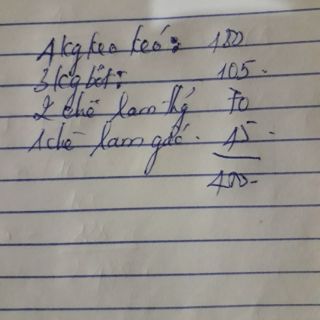 4kg kẹo keó: 180
3kg bột: 105.
2 chè lam ký 70
1 chè lam gấc. 45.
400-